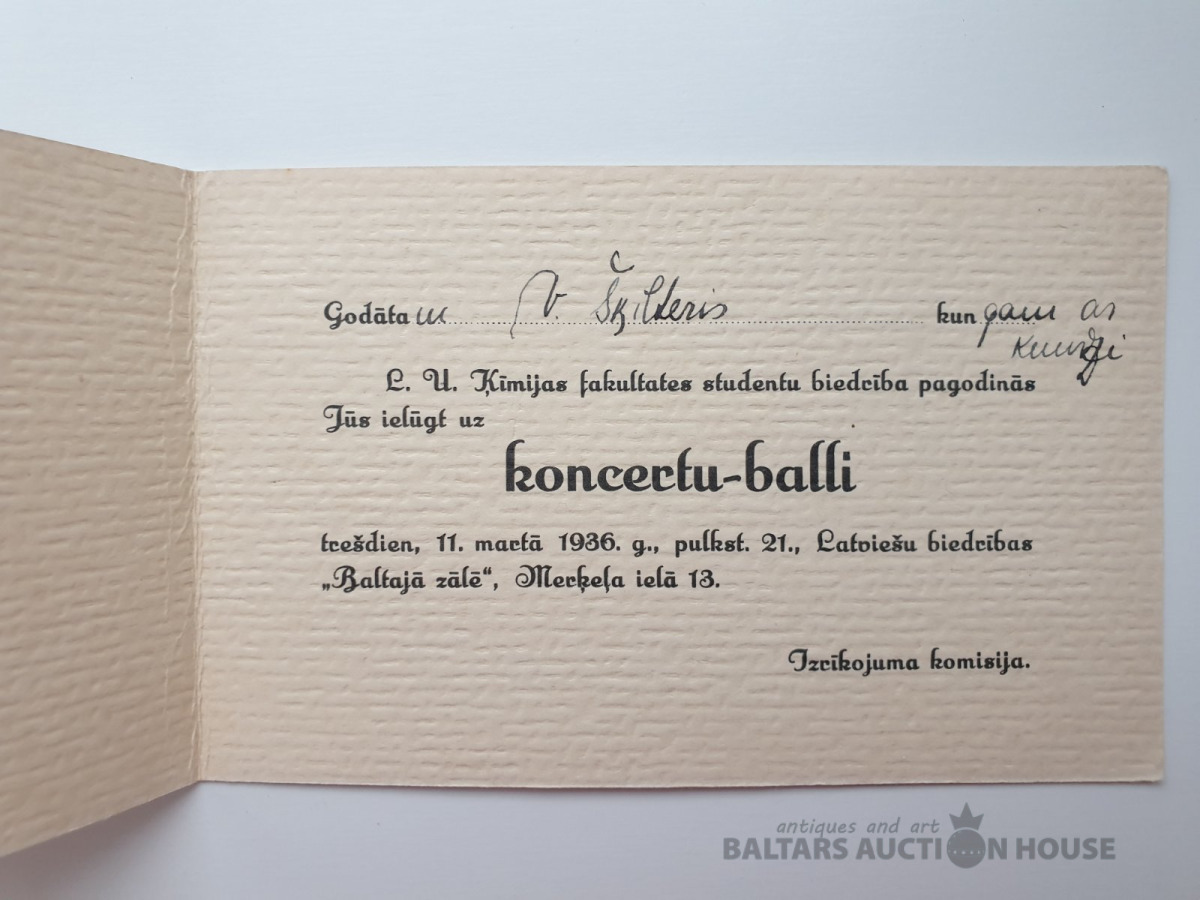 Godātam V. Šķilteris kungam ar
kundzi
L. U. Ķīmijas fakultates studentu biedrība pagodinās
Jūs ielūgt uz
koncertu-balli
trešdien, 11. martā 1936. g., pulkst. 21., Latviešu biedrības
„Baltajā zālē“, Merķeļa ielā 13.
Izrīkojuma komisija.
antiques and art
BALTARS AUCTION HOUSE